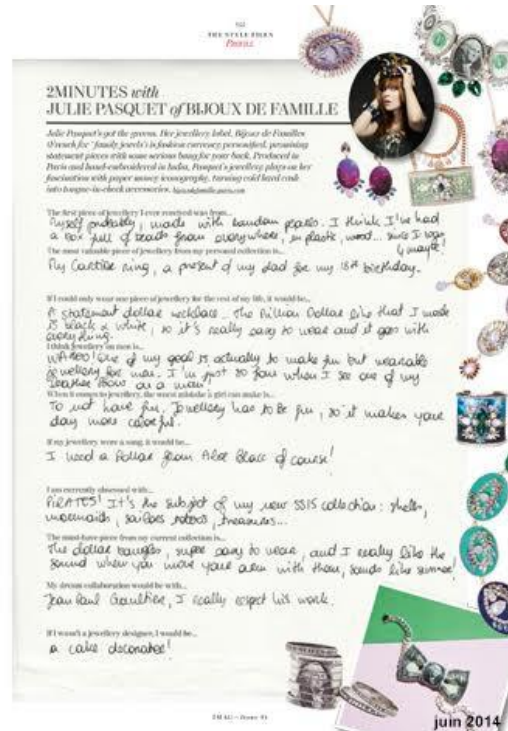 THE STYLE FILES
Profile
2MINUTES with
JULIE PASQUET of BIJOUX DE FAMILLE
Julie Pasquet's got the greens. Her jewellery label, Bijoux de Familles
(French for 'family jewels') is fashion currency personified, promising
statement pieces with some serious bang for your buck. Produced in
Paris and hand-embroidered in India, Pasquet's jewellery plays on her
fascination with paper money iconography, turning cold hard cash
into tongue-in-cheek accessories.
The first piece of jewellery I ever received was from...
Myself probably, made with random pearls. I think I've had
a box full of beads from everywhere, in plastic, wood... since I was
4 maybe!
The most valuable piece of jewellery from my personal collection is...
My Cartier ring, a present of my dad for my 18th birthday.
If I could only wear one piece of jewellery for the rest of my life, it would be...
A statement dollar necklace. The Million Dollar like that I made
is black & white, so it's really easy to wear and it goes with
everything.
I think jewellery on men is...
one of my goal is actually to make fun but wearable
jewellery for men. I'm just so fan when I see one of my
leather bows on a man!
When it comes to jewellery, the worst mistake a girl can make is...
To not have fun. Jewellery has to be fun, so it makes your
day more colorful.
If my jewellery were a song, it would be...
I need a Dollar from Aloe Blacc of course!
I am currently obsessed with...
PIRATES! It's the subject of my new SS15 collection: shells,
mermaids, sailors, treasures...
The must-have piece from my current collection is...
The dollar bangles, super easy to wear, and I really like the
sound when you move your arm with them, sounds like summer!
My dream collaboration would be with...
Jean Paul Gaultier, I really respect his work.
If I wasn't a jewellery designer, I would be...
a cake decorator!
juin 2014